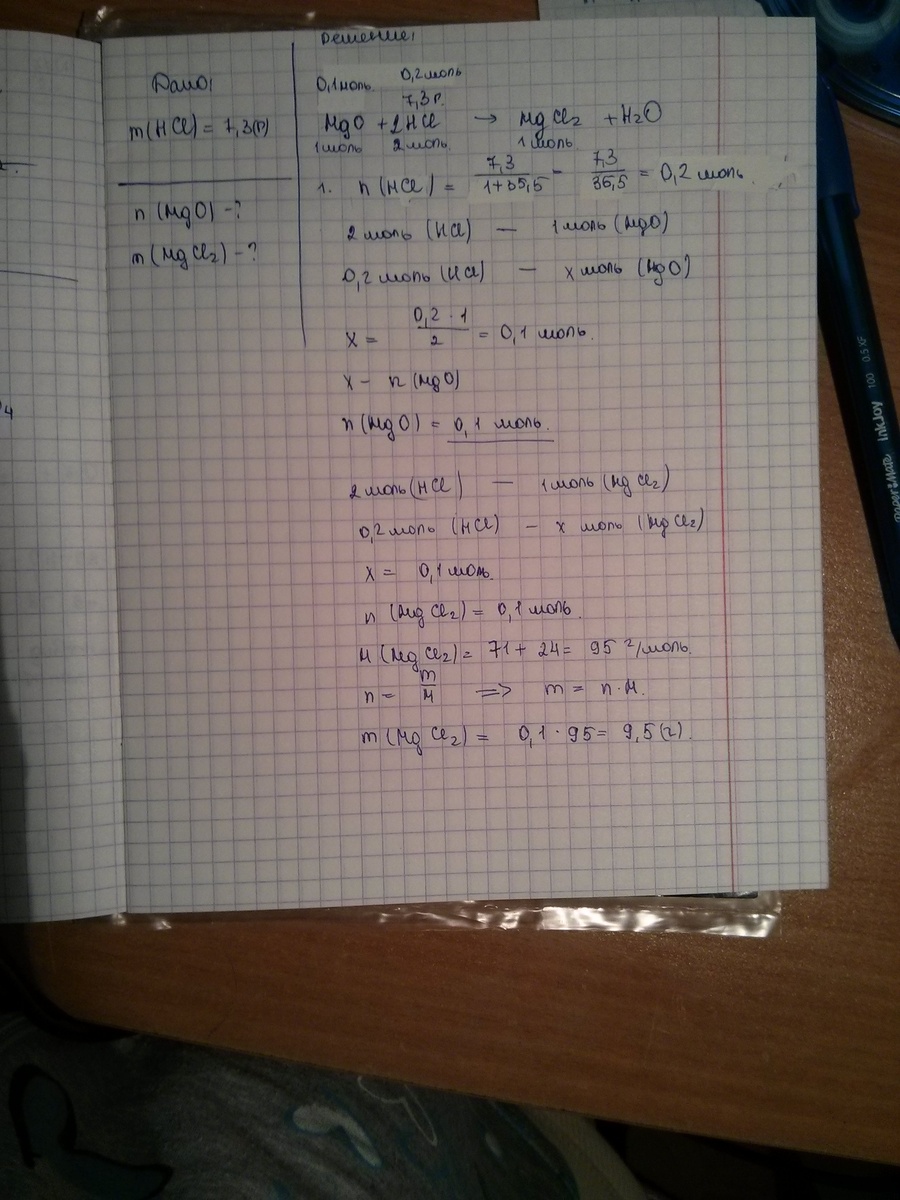 Дано:
m(HCl) = 7,3(г)
n (MgO) -?
m(MgCl₂) -?
Решение:
0,1моль. 0,2моль
7,3г.
MgO + 2HCl → MgCl₂ + H₂O
1моль 2моль. 1моль.
1. n (HCl) = 7,3/1+35,5 = 7,3/36,5 = 0,2 моль.
2моль (HCl) — 1моль (MgO)
0,2моль (HCl) — x моль (MgO)
x = 0,2 · 1/2 = 0,1 моль.
x - n (MgO)
n (MgO) = 0,1 моль.
2моль(HCl) — 1моль (MgCl₂)
0,2моль (HCl) – x моль (MgCl₂)
x = 0,1моль.
n (MgCl₂) = 0,1моль.
M (MgCl₂) = 71 + 24 = 95 г/моль.
n = m/M => m = n·M.
m (MgCl₂) = 0,1 · 95 = 9,5(г).
PAPER:MATE InkJoy 100 0.5 XF